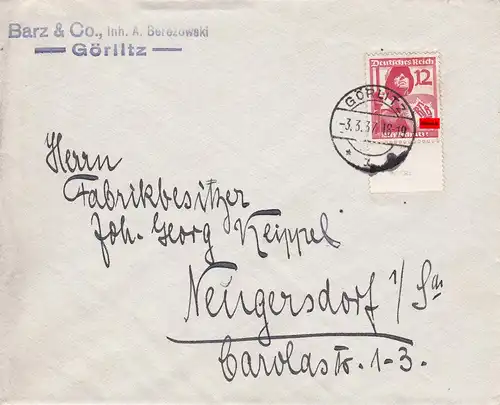 Barz & Co., Inh. A. Berezowski
Görlitz
Deutsches Reich
12
GÖRLITZ
-3.3.37.18-19
* 3
Herrn
Fabrikbesitzer
Joh. Georg Keippel
Neugersdorf i/Sa
Carolastr. 1-3.